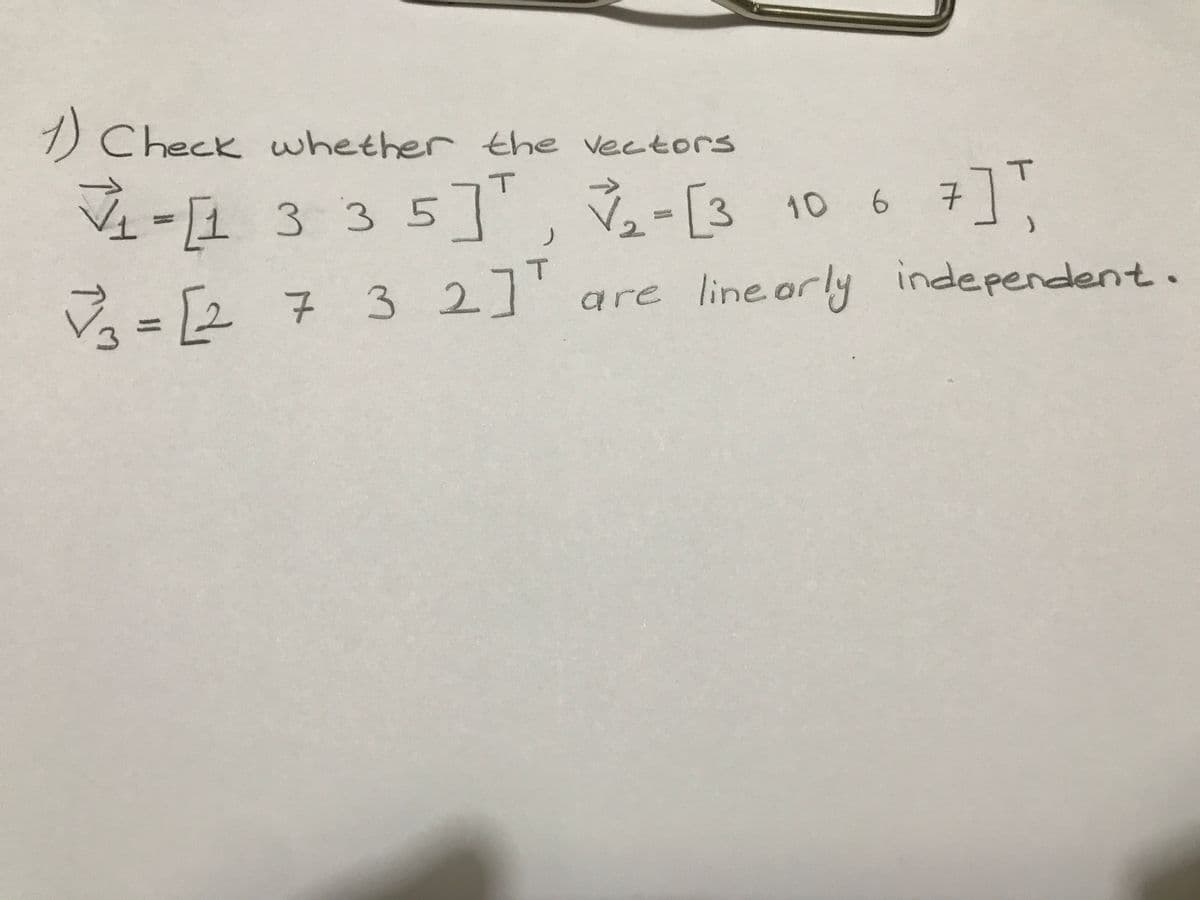 1) Check whether the vectors
v⃗₁ = [1 3 3 5]ᵀ, v⃗₂ = [3 10 6 7]ᵀ,
v⃗₃ = [2 7 3 2]ᵀ are linearly independent.